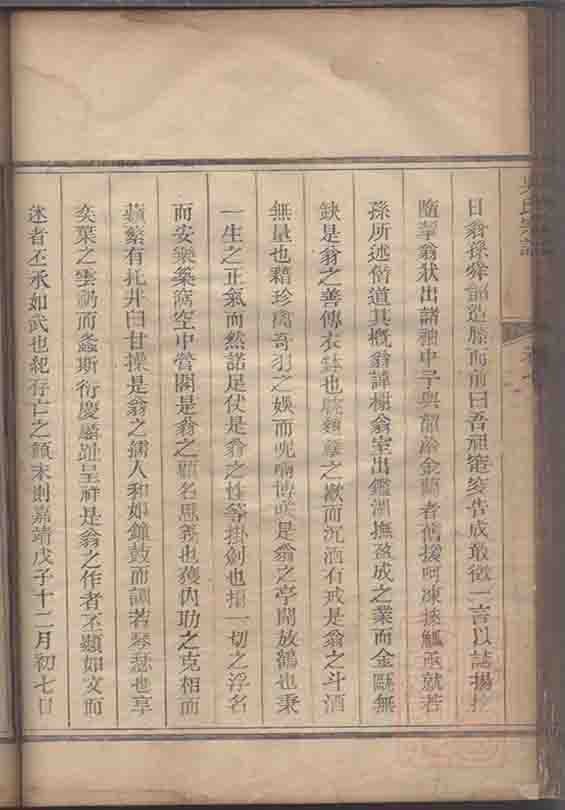 吳氏宗譜
日翁孫舜韶造膝而前曰吾祖窀穸告成敢徵一言以誌揚扢
隨挈翁狀出諸袖中予與韶為金蘭者舊援呵凍搦觚亟就若
孫所述僭道其概翁諱樹翁室出鑑湖撫盈成之業而金甌無
缺是翁之善傳衣鉢也耽麴櫱之歡而沉酒有戒是翁之斗酒
無量也藉珍禽奇羽之娛而呢喃博笑是翁之亭開放鶴也秉
一生之正氣而然諾足仗是翁之性等掛劍也捐一切之浮名
而安樂築窩空中營閣是翁之顧名思義也獲內助之克相而
蘋蘩有托井臼甘操是翁之孺人和如鐘鼓而調若琴瑟也享
奕葉之雲礽而螽斯衍慶麟趾呈祥是翁之作者丕顯如文而
述者丕承如武也紀存亡之顛末則嘉靖戊子十二月初七日